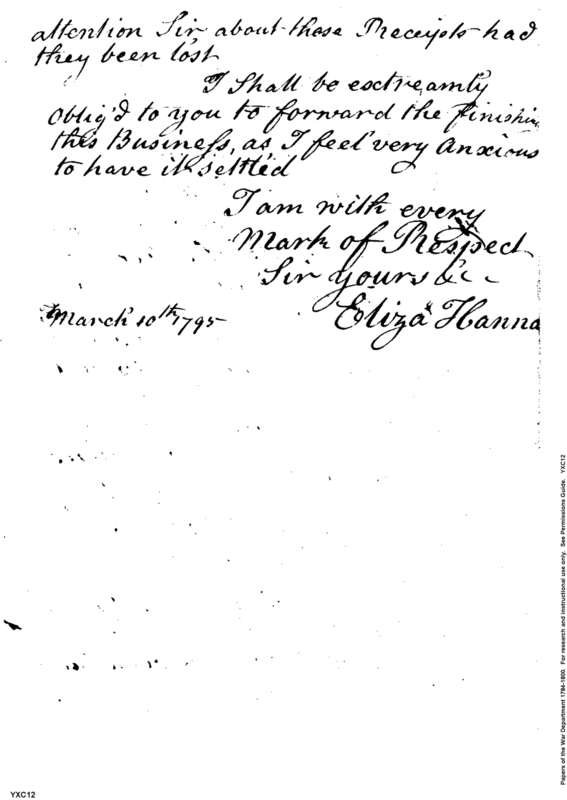 attention Sir about those Receipts had
they been lost
I Shall be exstreamly
Oblig'd to you to forward the finishin
this Business, as I feel very Anxious
to have it settled
I am with every
Mark of Respect
Sir yours &c
Eliza Hanna
March 10th 1795
Papers of the War Department 1784-1800. For research and instructional use only. See Permissions Guide. YXC12
YXC12